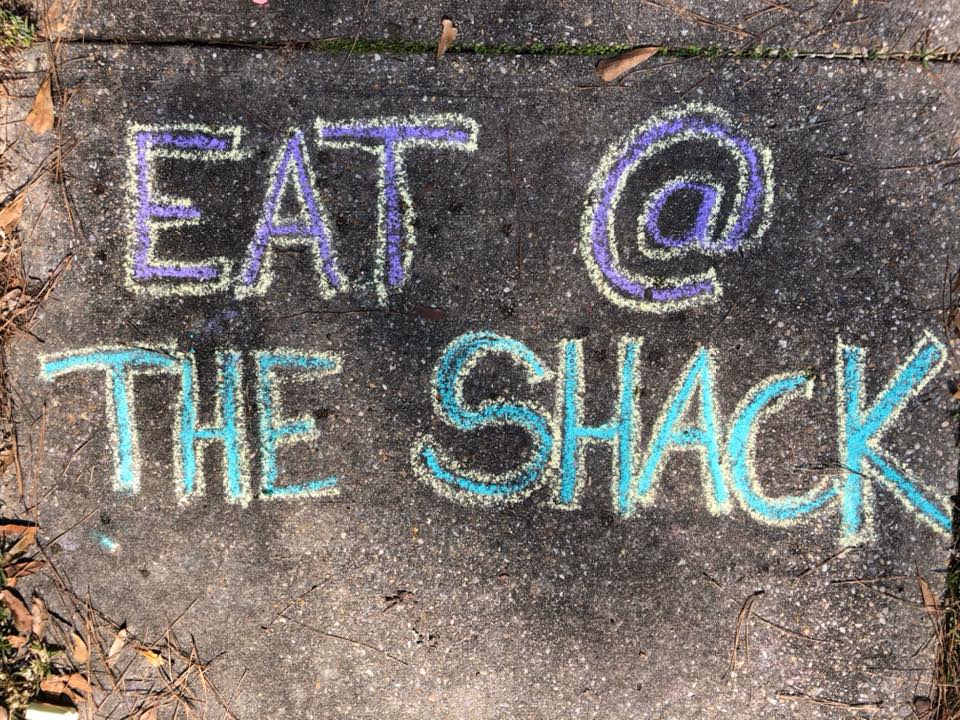 EAT @
THE SHACK